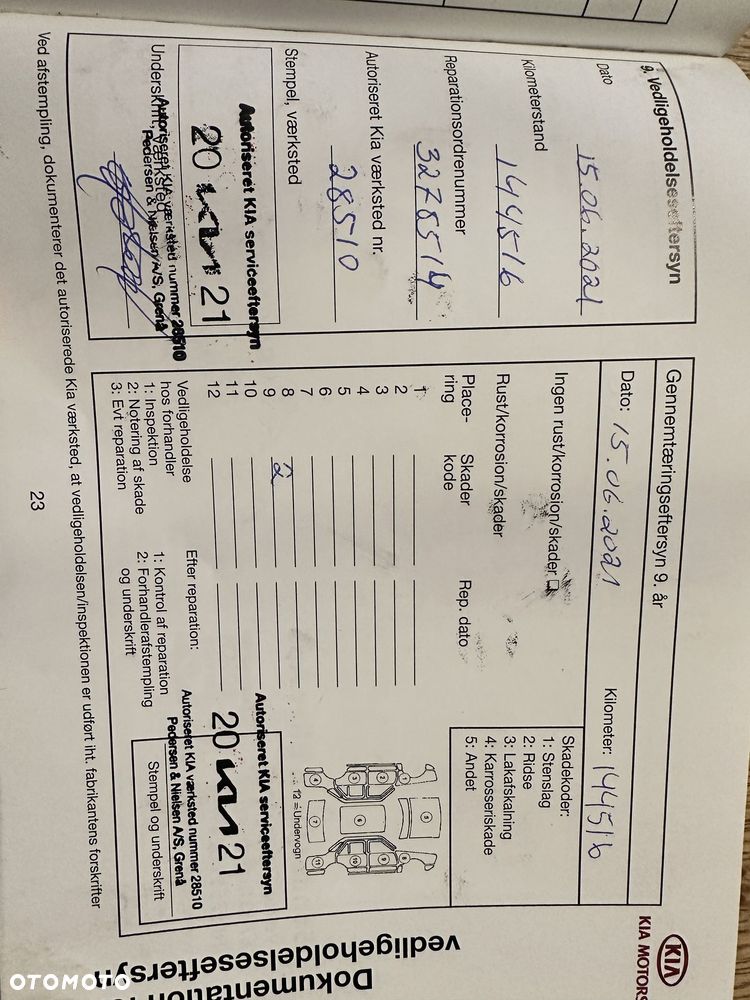 9. Vedligeholdelseseftersyn
Dato 15.06.2021
Kilometerstand 144516
Reparationsordrenummer 3278514
Autoriseret Kia værksted nr. 28510
Stempel, værksted
Autoriseret KIA serviceeftersyn
20 KIA 21
Underskrift, værksted
Autoriseret KIA værksted nummer 28510
Pedersen & Nielsen A/S, Grenå
Gennemtæringseftersyn 9. år
Dato: 15.06.2021 Kilometer: 144516
Ingen rust/korrosion/skader
Rust/korrosion/skader
Place-
ring
Skader
kode
Rep. dato
1
2
3
4
5
6
7
8 2
9
10
11
12
Skadekoder:
1: Stenslag
2: Ridse
3: Lakafskalning
4: Karrosseriskade
5: Andet
12 = Undervogn
Vedligeholdelse
hos forhandler
1: Inspektion
2: Notering af skade
3: Evt reparation
Efter reparation:
1: Kontrol af reparation
2: Forhandlerafstempling
og underskrift
Autoriseret KIA serviceeftersyn
20 KIA 21
Autoriseret KIA værksted nummer 28510
Pedersen & Nielsen A/S, Grenå
Stempel og underskrift
Ved afstempling, dokumenterer det autoriserede Kia værksted, at vedligeholdelsen/inspektionen er udført iht. fabrikantens forskrifter
23
KIA
KIA MOTORS
Dokumentation
vedligeholdelseseftersyn
OTOMOTO